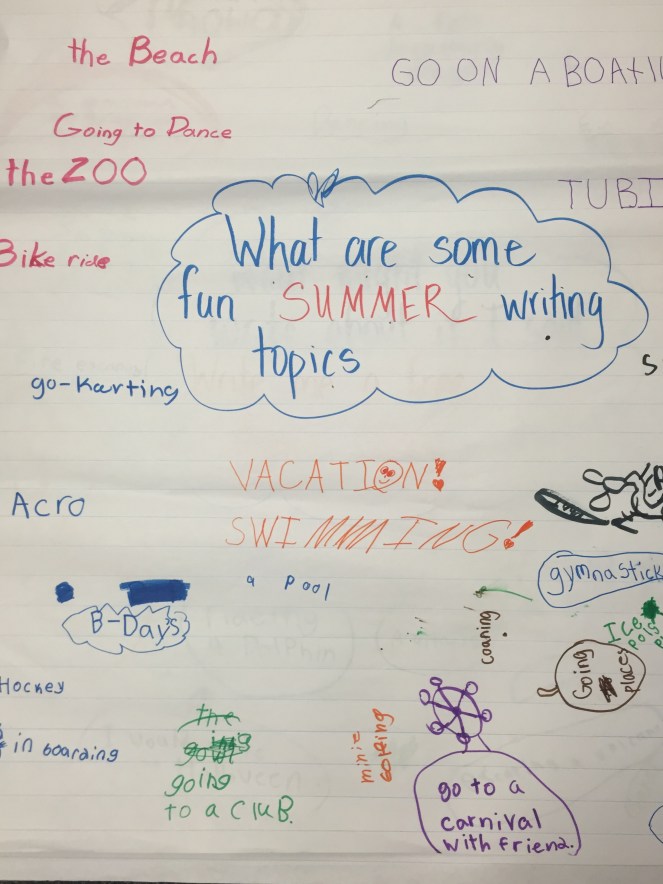 the Beach
GO ON A BOAT
Going to Dance
the ZOO
TUBI
Bike ride
What are some
fun SUMMER writing
topics
go-karting
S
VACATION!
Acro
SWIMMING!
a Pool
gymnastick
B-Days
coaning
ICE
Pols
Going
places
Hockey
in boarding
the
going
to a CluB.
minie
golfing
go to a
carnival
with friend.